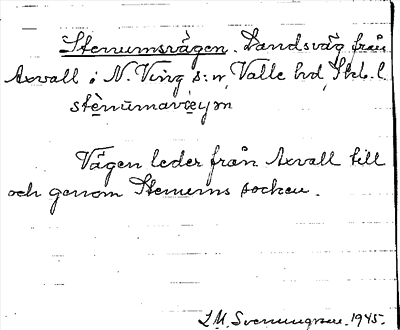 Stenumsvägen. Landsväg från
Axvall i N. Ving s:n, Valle hd, Skb. l.
stènūmavèeyɱ
Vägen leder från Axvall till
och genom Stenums socken.
L.M. Svenungsson. 1945.